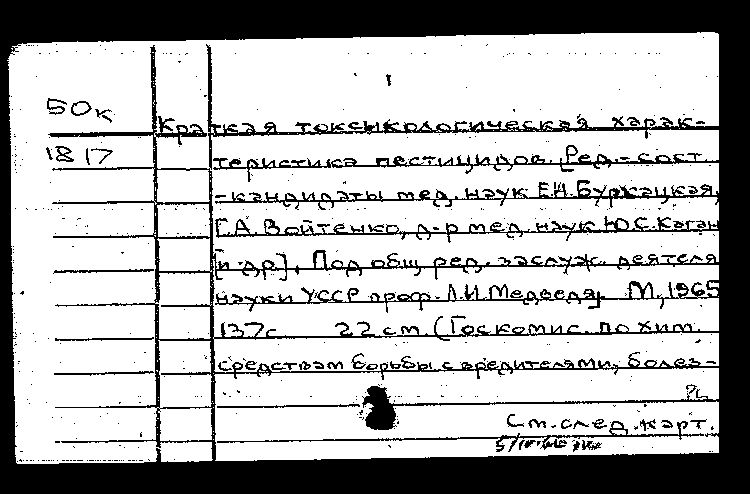 50к
Краткая токсикологическая харак-
1817
теристика пестицидов. [Ред.-сост.
-кандидаты мед. наук Е.Н.Буркацкая,
Г.А. Войтенко, д-р мед. наук Ю.С.Каган
[и др.]. Под общ. ред. заслуж. деятеля
науки УССР проф. Л.И.Медведя]. М., 1965
137с 22 см. (Госкомис. по хим.
средствам борьбы с вредителями, болез-
См. след. карт.